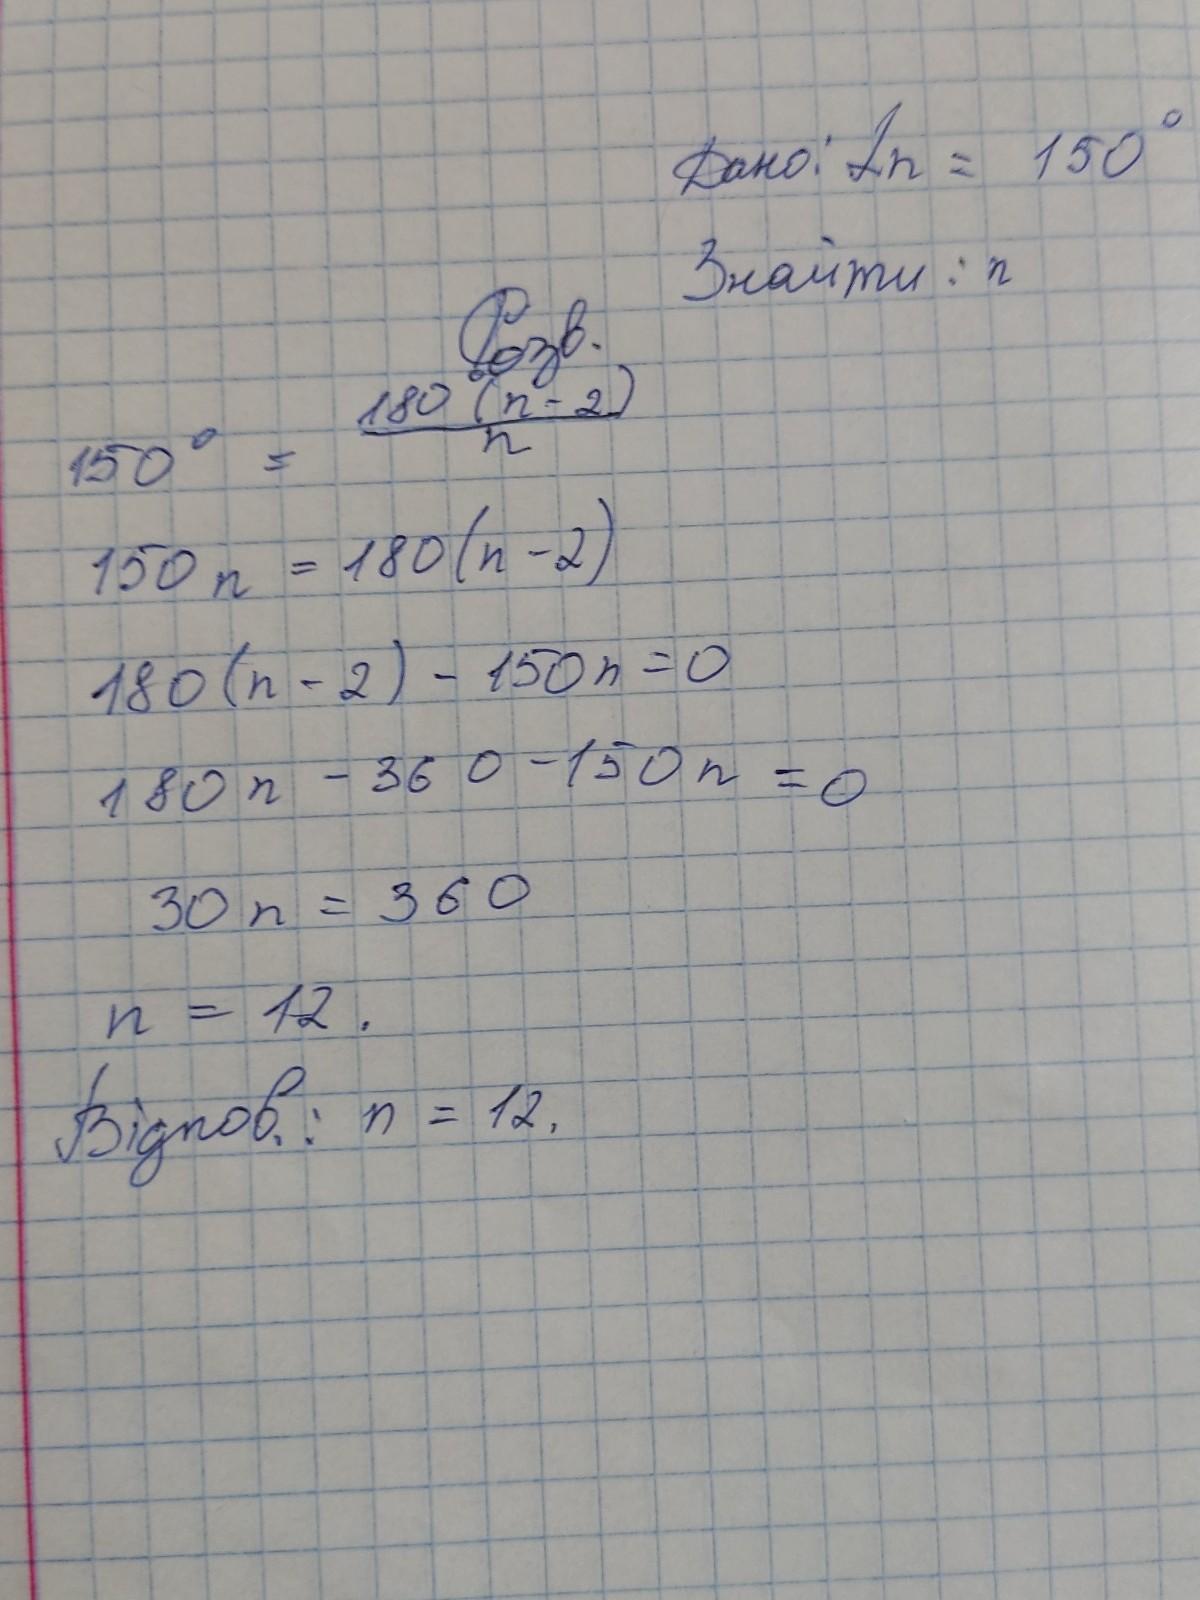 Дано: Ln = 150°
Знайти: n
Розв.
150° = 180°(n-2)/n
150n = 180(n-2)
180(n-2) - 150n = 0
180n - 360 - 150n = 0
30n = 360
n = 12.
Відпов.: n = 12.